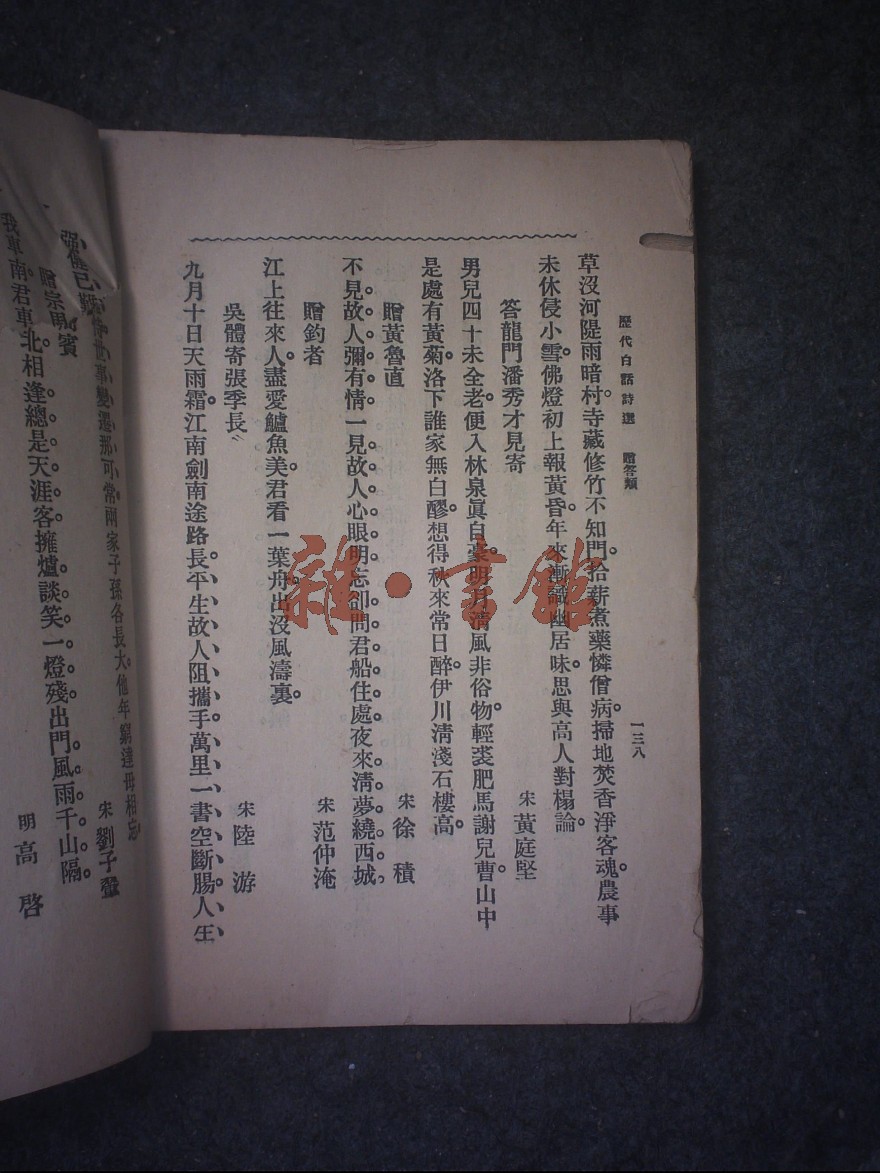 歷代白話詩選　贈答類　一三八
草沒河隄雨暗村。寺藏修竹不知門。拾薪煮藥憐僧病。掃地焚香淨客魂。農事
未休侵小雪。佛燈初上報黃昏。年來漸識幽居味。思與高人對榻論。
答龍門潘秀才見寄　宋黃庭堅
男兒四十未全老。便入林泉眞自豪。明月清風非俗物。輕裘肥馬謝兒曹。山中
是處有黃菊。洛下誰家無白醪。想得秋來常日醉。伊川清淺石樓高。
贈黃魯直　宋徐積
不見故人彌有情。一見故人心眼明。忘卻問君船住處。夜來清夢繞西城。
贈釣者　宋范仲淹
江上往來人。盡愛鱸魚美。君看一葉舟。出沒風濤裏。
吳體寄張季長　宋陸游
九月十日天雨霜。江南劍南途路長。平生故人阻攜手。萬里一書空斷腸。人生
世事變遷那可常。兩家子孫各長大。他年窮達毋相忘。
宋劉子翬
贈宗明賓
我車南。君車北。相逢總是天涯客。擁爐談笑一燈殘。出門風雨千山隔。
明高啓
雜·書館